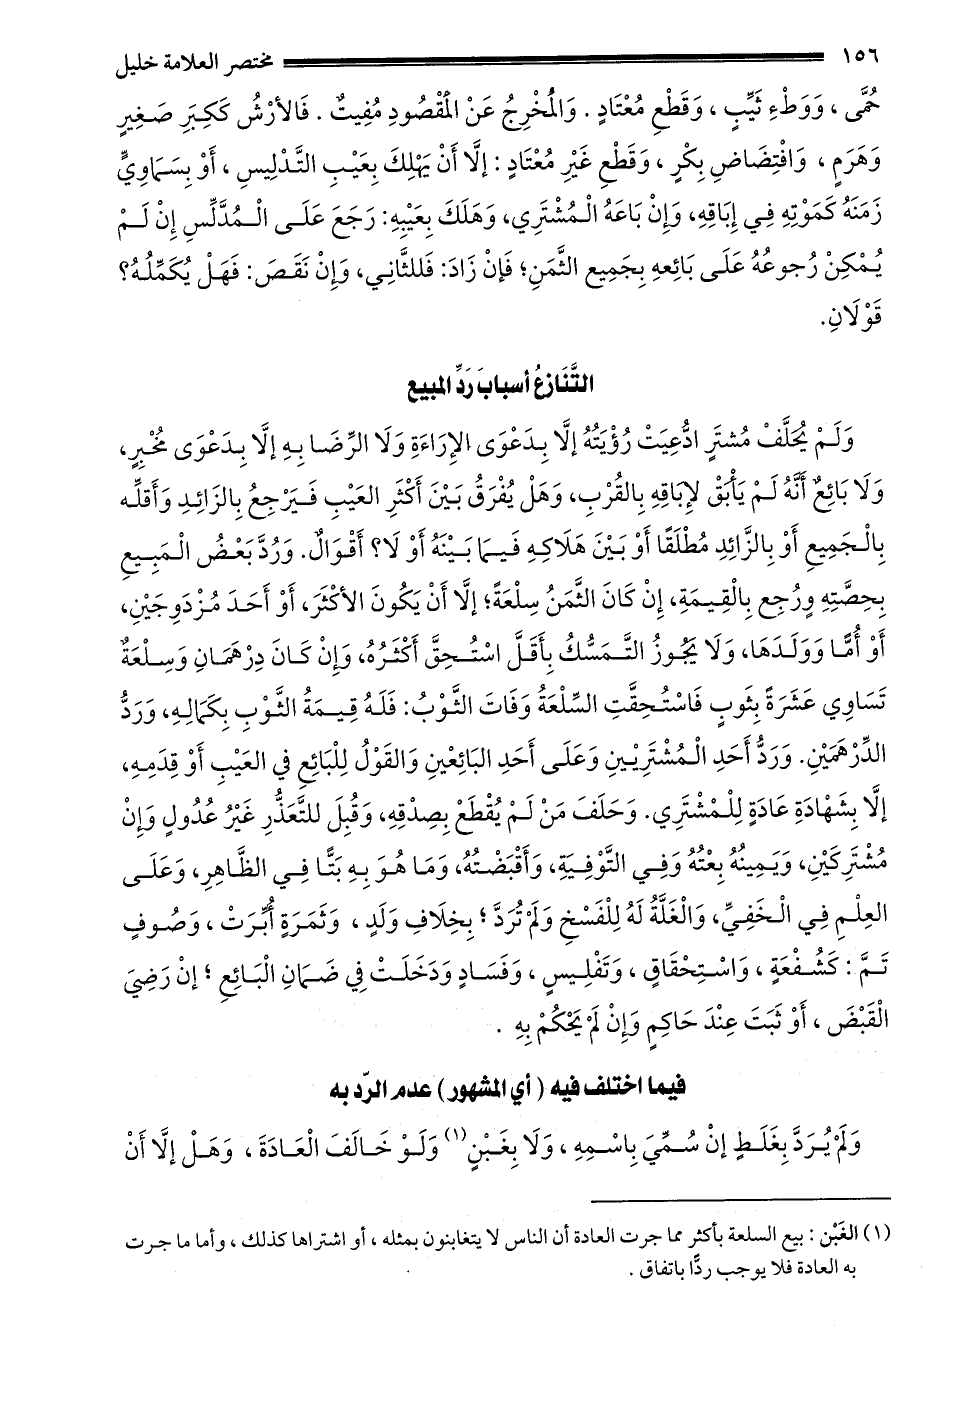 ١٥٦ مختصر العلامة خليل
حُمَّى ، وَوَطْءِ ثَيِّبٍ ، وَقَطْعٍ مُعْتَادٍ . وَالمُخْرِجُ عَنْ المَقْصُودِ مُفِيتٌ . فَالأَرْشُ كَكِبَرِ صَغِيرٍ
وَهَرَمٍ ، وَافْتِضَاضِ بِكْرٍ ، وَقَطْعٍ غَيْرِ مُعْتَادٍ : إلَّا أَنْ يَهْلِكَ بِعَيْبِ التَّدْلِيسِ ، أَوْ بِسَمَاوِيٍّ
زَمَنَهُ كَمَوْتِهِ فِي إبَاقِهِ، وَإِنْ بَاعَهُ الْمُشْتَرِي، وَهَلَكَ بِعَيْبِهِ: رَجَعَ عَلَى الْمُدَلِّسِ إنْ لَمْ
يُمْكِنْ رُجوعُهُ عَلَى بَائِعِهِ بِجَمِيعِ الثَّمَنِ؛ فَإِنْ زَادَ: فَللثَّانِي، وَإِنْ نَقَصَ: فَهَلْ يُكَمِّلُهُ؟
قَوْلَانِ.
التَّنَازعُ أسبابَ رَدِّ المبيع
وَلَمْ يُحَلَّفْ مُشْتَرٍ ادُّعِيَتْ رُؤْيَتُهُ إلَّا بِدَعْوَى الإِرَاءَةِ وَلَا الرِّضَا بِهِ إلَّا بِدَعْوَى مُخْبِرٍ،
وَلَا بَائِعٌ أَنَّهُ لَمْ يَأْبَقْ لإِبَاقِهِ بِالقُرْبِ، وَهَلْ يُفْرَقُ بَيْنَ أَكْثَرِ العَيْبِ فَيَرْجِعُ بِالزَّائِدِ وَأَقلِّه
بِالْجَمِيعِ أَوْ بِالزَّائِدِ مُطْلَقًا أَوْ بَيْنَ هَلَاكِهِ فَيِمَا بَيَّنَهُ أَوْ لَا؟ أَقْوَالٌ. وَرُدَّ بَعْضُ الْمَبِيعِ
بِحِصَّتِهِ ورُجِع بِالْقِيمَةِ، إِنْ كَانَ الثَّمَنُ سِلْعَةً؛ إلَّا أَنْ يَكُونَ الأَكْثَرَ، أَوْ أَحَدَ مُزْدَوِجَيْنِ،
أَوْ أُمًّا وَوَلَدَهَا، وَلَا يَجُوزُ التَّمَسُّكُ بِأَقَلَّ اسْتُحِقَّ أَكْثَرُهُ، وَإِنْ كَانَ دِرْهَمَانِ وَسِلْعَةٌ
تَسَاوِي عَشَرَةً بِثَوبٍ فَاسْتُحِقَّتِ السِّلْعَةُ وَفَاتَ الثَّوْبُ: فَلَهُ قِيمَةُ الثَّوْبِ بِكَمَالِهِ، وَرَدُّ
الدِّرْهَمَيْنِ. وَرَدُّ أَحَدِ الْمُشْتَرِيَيْنِ وَعَلَى أَحَدِ البَائِعْينِ وَالقَوْلُ لِلْبَائِعِ في العَيْبِ أَوْ قِدَمِهِ،
إلَّا بِشَهَادَةِ عَادَةٍ لِلْمُشْتَرِي. وَحَلَفَ مَنْ لَمْ يُقْطَعْ بِصِدْقِهِ، وَقُبِلَ للتَّعَذُّرِ غَيْرُ عُدُولٍ وَإِنْ
مُشْتَرِكَيْنِ، وَيَمِينُهُ بِعْتُهُ وَفِي التَّوْفِيَةِ، وَأَقْبَضْتُهُ، وَمَا هُوَ بِهِ بَتًّا فِي الظَّاهِرِ، وَعَلَى
العِلْمِ فِي الْخَفِيِّ، وَالْغَلَّةُ لَهُ لِلْفَسْخِ وَلَمْ تُرَدَّ ؛ بِخِلَافِ وَلَدٍ ، وَثَمَرَةٍ أُبِّرَتْ ، وَصُوفٍ
تَمَّ : كَشُفْعَةٍ ، وَاسْتِحْقَاقٍ ، وَتَفْلِيسٍ ، وَفَسَادٍ وَدَخَلَتْ فِي ضَمَانِ الْبَائِعِ ؛ إنْ رَضِيَ
الْقَبْضَ ، أَوْ ثَبَتَ عِنْدَ حَاكِمٍ وَإِنْ لَمْ يَحْكُمْ بِهِ .
فيما اختلف فيه ( أي المشهور ) عدم الرّد به
وَلَمْ يُرَدَّ بِغَلَطٍ إِنْ سُمِّيَ بِاسْمِهِ ، وَلَا بِغَبْنٍ(١) وَلَوْ خَالَفَ الْعَادَةَ ، وَهَلْ إلَّا أَنْ
(١) الغَبْن : بيع السلعة بأكثر مما جرت العادة أن الناس لا يتغابنون بمثله ، أو اشتراها كذلك ، وأما ما جرت
به العادة فلا يوجب ردًّا باتفاق .